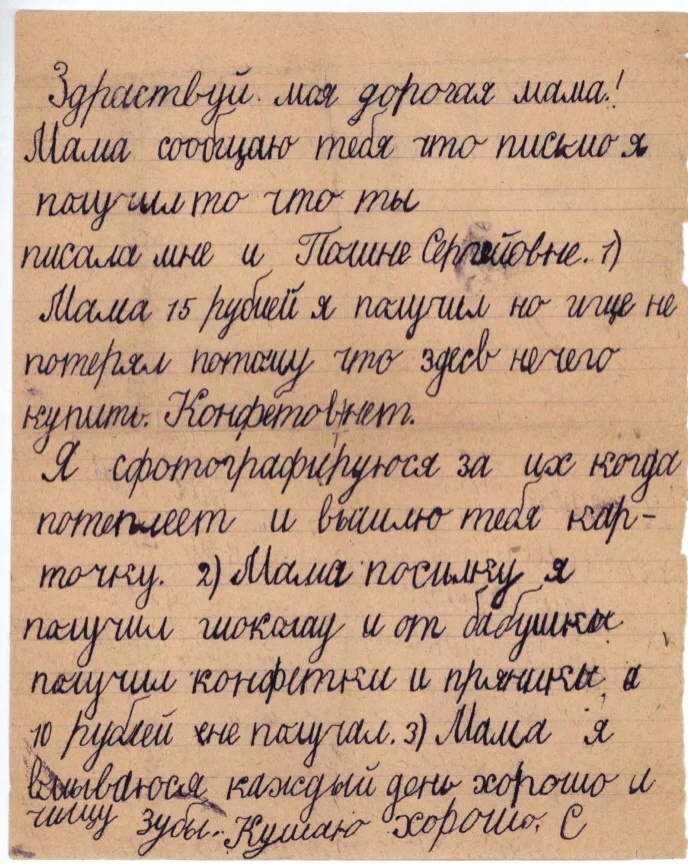 Здраствуй моя дорогая мама!
Мама сообщаю тебя что письмо я
получил то что ты
писала мне и Полине Сергейовне. 1)
Мама 15 рублей я получил но ище не
потерял потому что здесь нечего
купить. Конфетов нет.
Я сфотографируюся за их когда
потеплеет и вышлю тебя кар-
точку. 2) Мама посылку я
получил шоколад и от бабушки
получил конфетки и пряники, а
10 рублей не получал. 3) Мама я
вмываюся каждый день хорошо и
чищу зубы. Кушаю хорошо. С